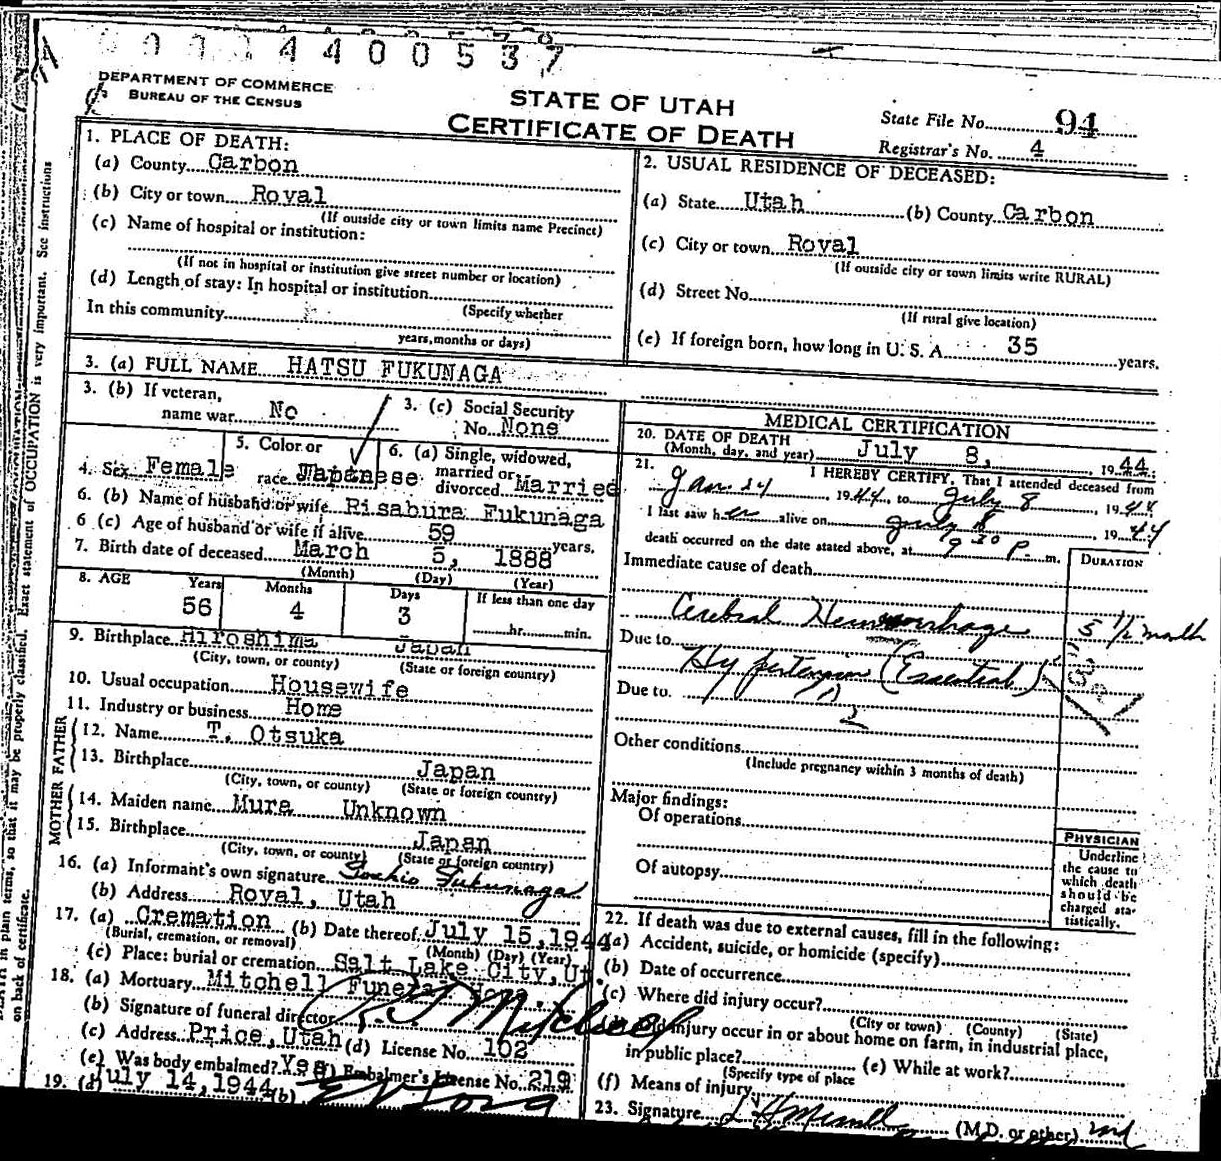 0001 4400537
DEPARTMENT OF COMMERCE
BUREAU OF THE CENSUS
STATE OF UTAH
CERTIFICATE OF DEATH
State File No. 94
Registrar's No. 4
1. PLACE OF DEATH:
(a) County Carbon
(b) City or town Royal
(If outside city or town limits name Precinct)
(c) Name of hospital or institution:
(If not in hospital or institution give street number or location)
(d) Length of stay: In hospital or institution
(Specify whether
In this community
years, months or days)
2. USUAL RESIDENCE OF DECEASED:
(a) State Utah (b) County Carbon
(c) City or town Royal
(If outside city or town limits write RURAL)
(d) Street No.
(If rural give location)
(e) If foreign born, how long in U. S. A. 35 years.
3. (a) FULL NAME HATSU FUKUNAGA
3. (b) If veteran,
name war No
3. (c) Social Security
No. None
4. Sex Female
5. Color or
race Japanese
6. (a) Single, widowed,
married or
divorced Married
6. (b) Name of husband or wife Risabura Fukunaga
6 (c) Age of husband or wife if alive 59 years.
7. Birth date of deceased March 5, 1888
(Month) (Day) (Year)
8. AGE Years Months Days If less than one day
56 4 3 hr. min.
9. Birthplace Hiroshima Japan
(City, town, or county) (State or foreign country)
10. Usual occupation Housewife
11. Industry or business Home
FATHER
12. Name T. Otsuka
13. Birthplace Japan
(City, town, or county) (State or foreign country)
MOTHER
14. Maiden name Mura Unknown
15. Birthplace Japan
(City, town, or county) (State or foreign country)
16. (a) Informant's own signature Toshio Fukunaga
(b) Address Royal, Utah
17. (a) Cremation (b) Date thereof July 15, 1944
(Burial, cremation, or removal) (Month) (Day) (Year)
(c) Place: burial or cremation Salt Lake City, Ut
18. (a) Mortuary Mitchell Funeral Home.
(b) Signature of funeral director
(c) Address Price, Utah (d) License No. 102
(e) Was body embalmed? Yes (f) Embalmer's License No. 219
19. (a) July 14, 1944 (b)
MEDICAL CERTIFICATION
20. DATE OF DEATH
(Month, day, and year) July 8, 1944
21. I HEREBY CERTIFY, That I attended deceased from
Jan. 24, 1944, to July 8, 1944
I last saw her alive on July 8 1944
death occurred on the date stated above, at 9 30 P. m.
DURATION
Immediate cause of death
Cerebral Hemorrhage 5 1/2 month
Due to
Hypertension (Essential)
Due to
2
Other conditions
(Include pregnancy within 3 months of death)
Major findings:
Of operations
Of autopsy
PHYSICIAN
Underline
the cause to
which death
should be
charged sta-
tistically.
22. If death was due to external causes, fill in the following:
(a) Accident, suicide, or homicide (specify)
(b) Date of occurrence
(c) Where did injury occur?
(City or town) (County) (State)
injury occur in or about home on farm, in industrial place,
in public place? (e) While at work?
(Specify type of place
(f) Means of injury
23. Signature (M.D. or other) md
on back of certificate.
in plain terms, so that it may be properly classified. Exact statement of OCCUPATION is very important. See instructions